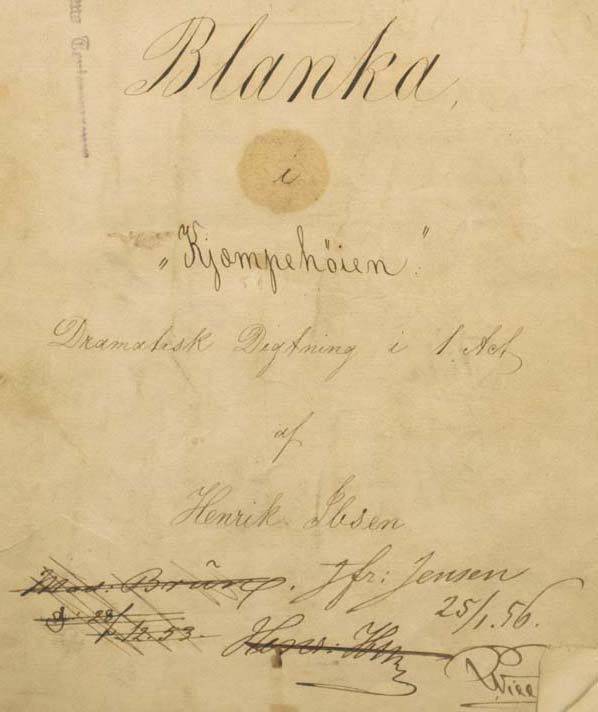 Blanka.
i
„Kjæmpehöien."
Dramatisk Degtning i 1 Act
af
Henrik Ibsen
Mad: Brün. Jfr: Jensen
25/1.56.
d. 28/12.53.